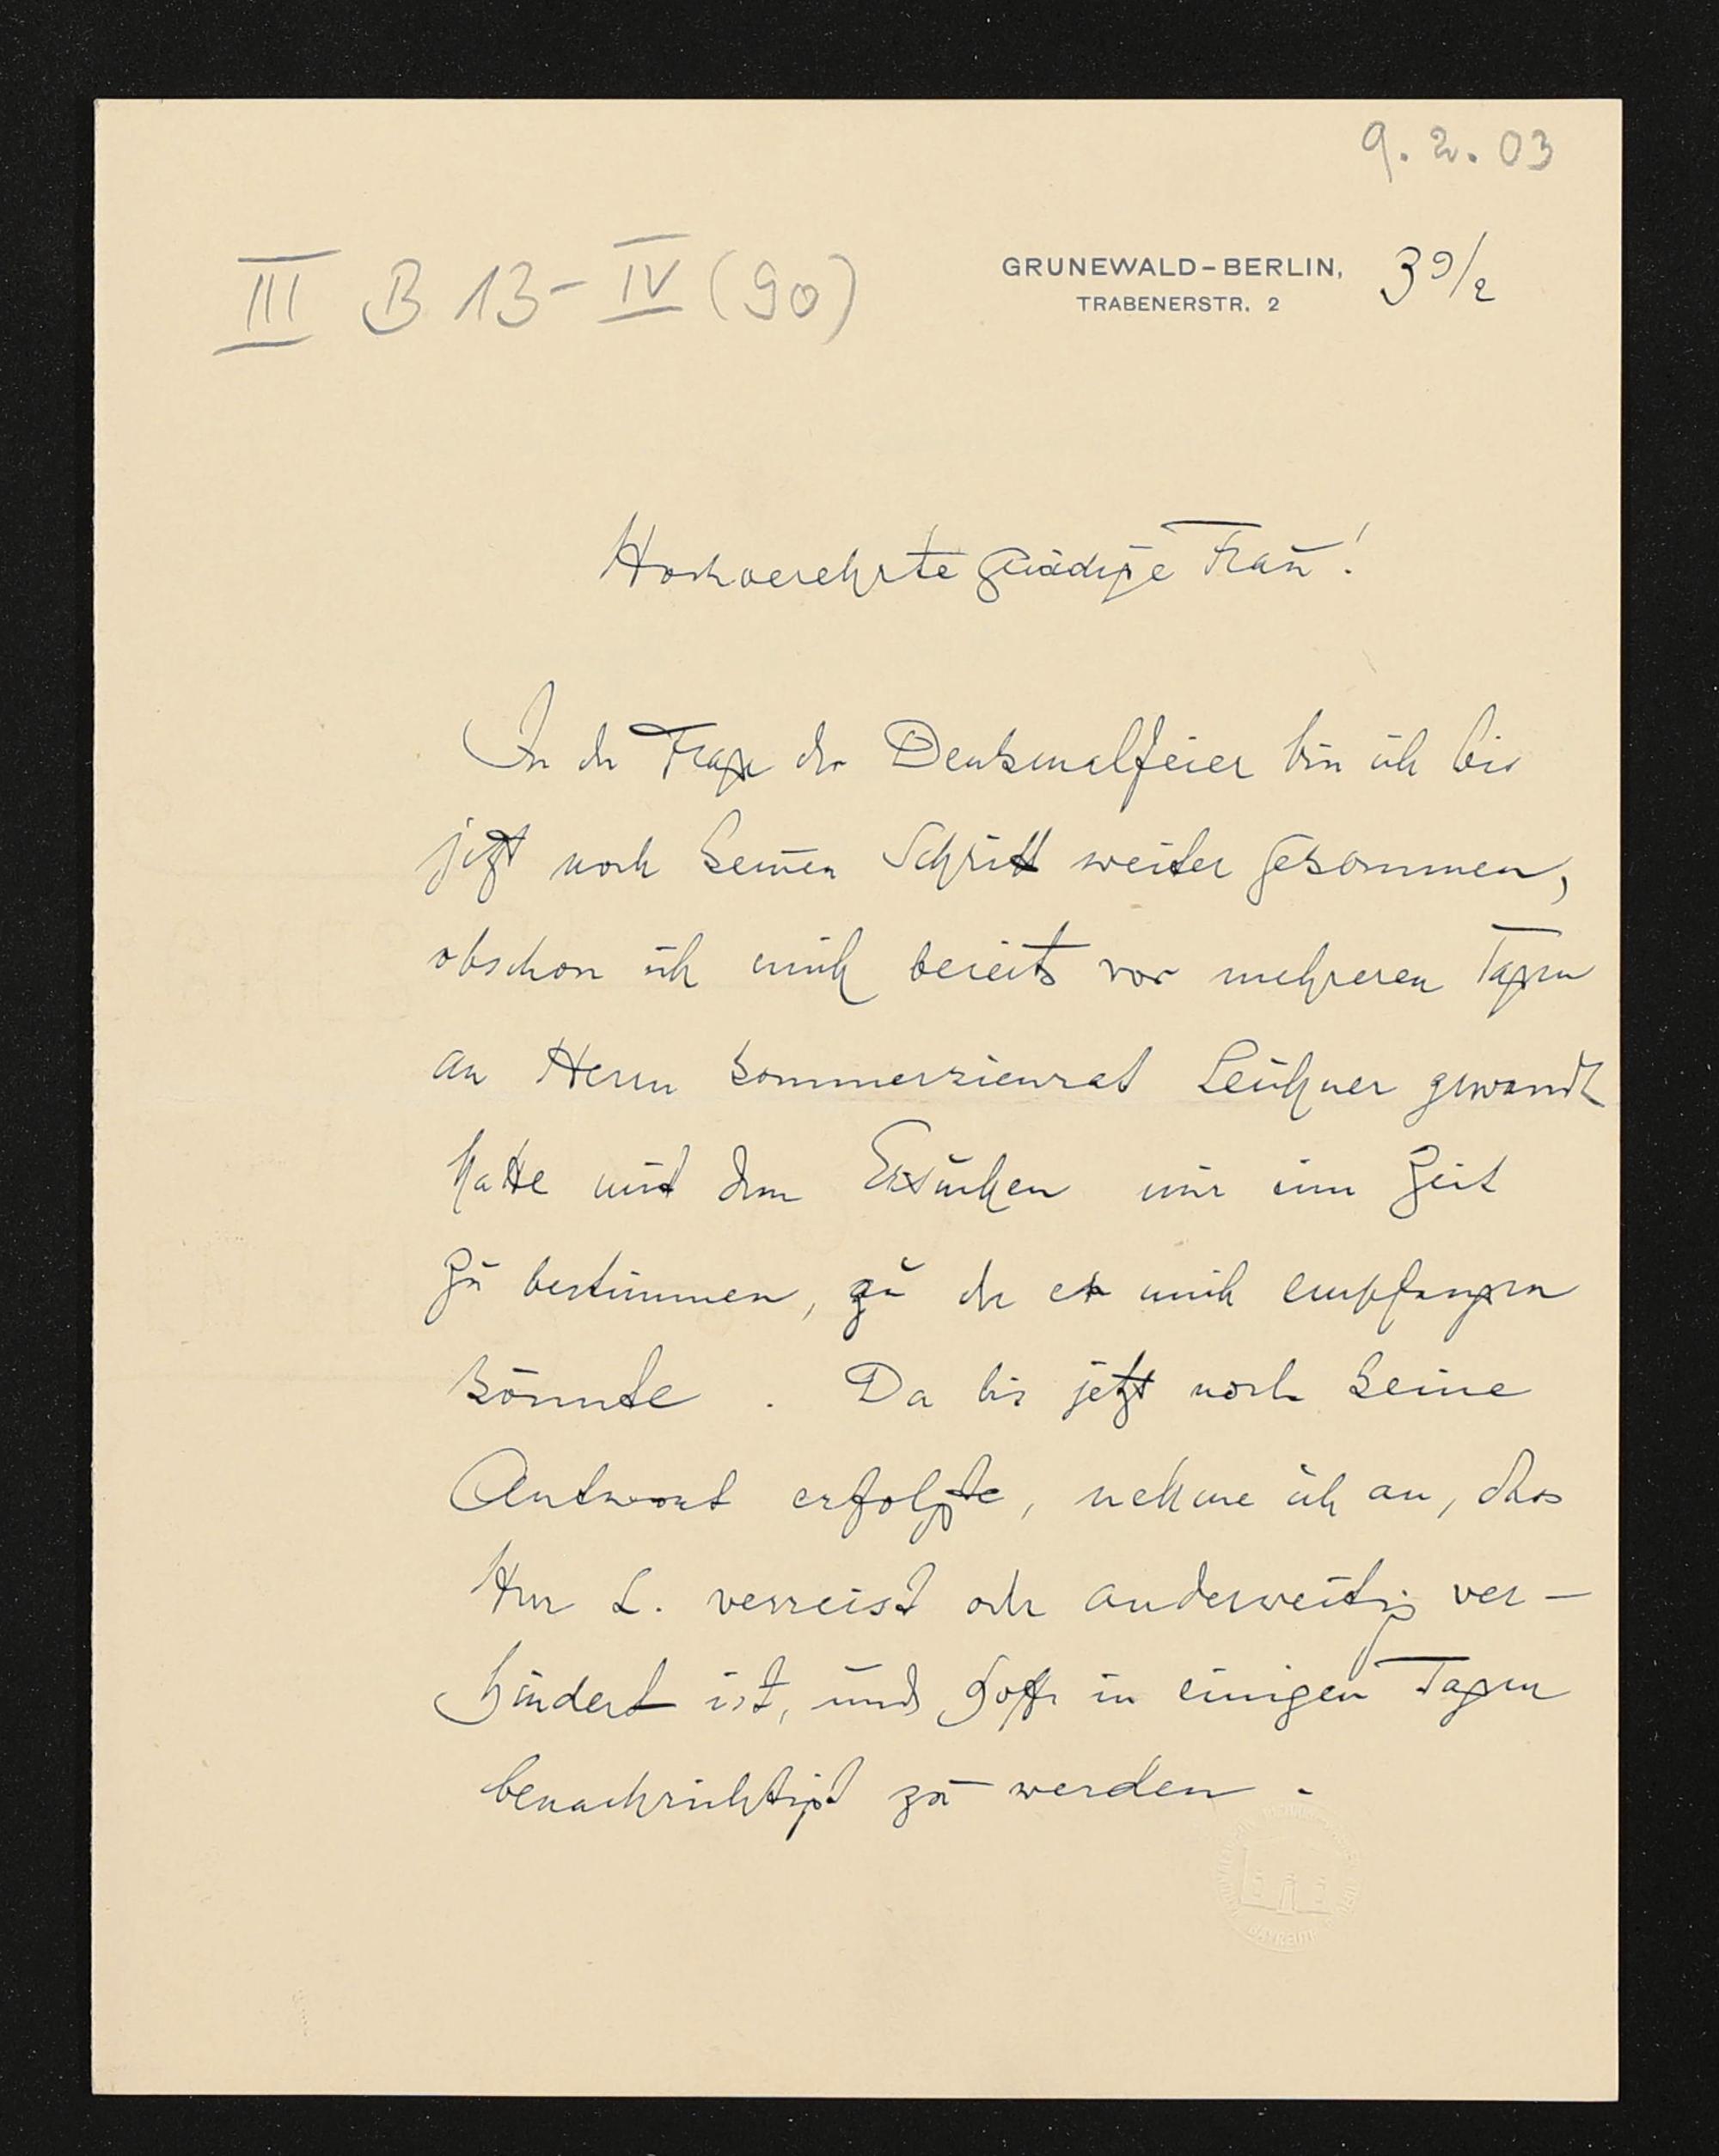 9. 2. 03
III B 13-IV (90)
GRUNEWALD-BERLIN,
TRABENERSTR. 2
3 9/2
Hochverehrte gnädige Frau!
In der Frage der Denkmalfeier bin ich bis
jetzt noch keinen Schritt weiter gekommen,
obschon ich mich bereits vor mehreren Tagen
an Herrn Kommerzienrat Leichner gewandt
hatte mit dem Ersuchen mir eine Zeit
zu bestimmen, zu der er mich empfangen
könnte. Da bis jetzt noch keine
Antwort erfolgte, nehme ich an, dass
Herr L. verreist oder anderweitig ver-
hindert ist, und hoffe in einigen Tagen
benachrichtigt zu werden.
BAYREUTH